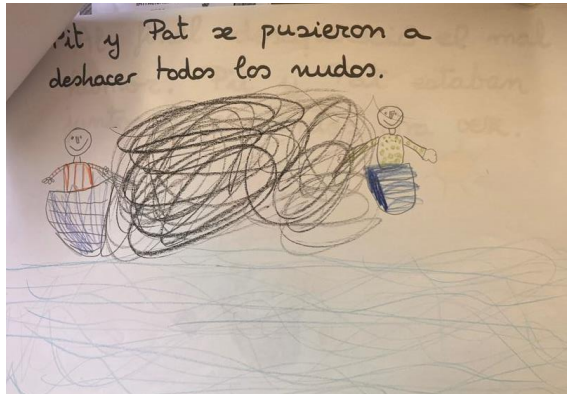 Pit y Pat se pusieron a
deshacer todos los nudos.